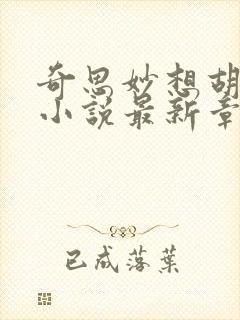 奇思妙想胡
小说最新章
已成落葉